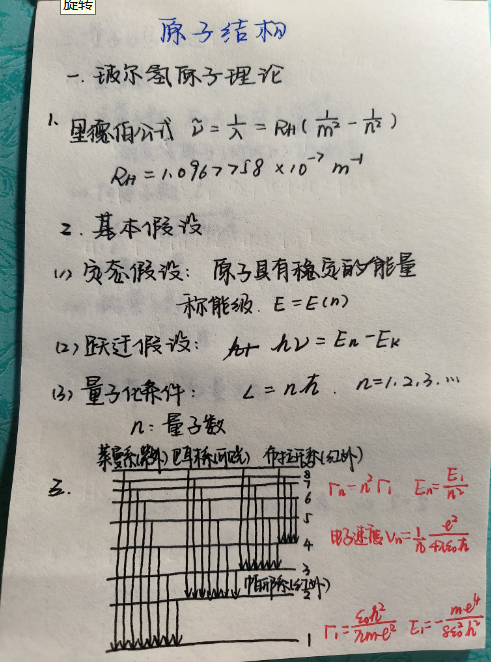 旋转
原子结构
一. 玻尔氢原子理论
1. 里德伯公式 ṽ = 1/λ = RH (1/m² - 1/n²)
RH = 1.0967758 × 10⁻⁷ m⁻¹
2. 基本假设
(1) 定态假设: 原子具有稳定的能量
称能级. E = E(n)
(2) 跃迁假设: hν = En - Ek
(3) 量子化条件: L = nħ. n = 1.2.3.…
n: 量子数
莱曼系(紫外) 巴耳末系(可见) 布拉开系(红外)
三.
8
7
6
5
4
3
帕邢系(红外)
2
1
rn = n² r1 En = E1/n²
电子速度 Vn = 1/n e²/4πε0ħ
r1 = ε0h²/πme² E1 = - me⁴/8ε0²h²